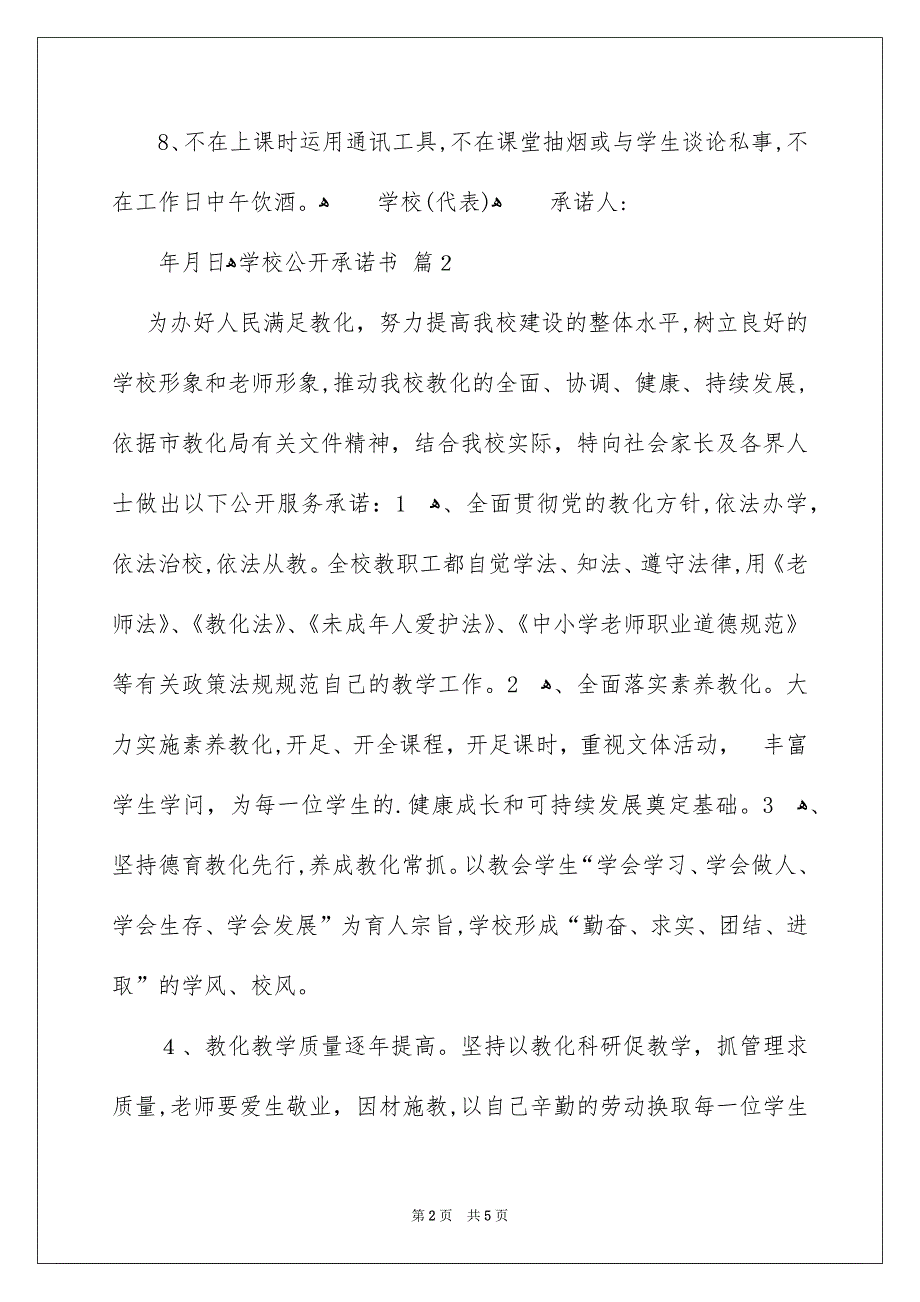 8、不在上课时运用通讯工具,不在课堂抽烟或与学生谈论私事,不
在工作日中午饮酒。ﻫ 学校(代表)ﻫ 承诺人:
年月日ﻫ学校公开承诺书 篇2
为办好人民满足教化，努力提高我校建设的整体水平,树立良好的
学校形象和老师形象,推动我校教化的全面、协调、健康、持续发展,
依据市教化局有关文件精神，结合我校实际，特向社会家长及各界人
士做出以下公开服务承诺：1 ﻫ、全面贯彻党的教化方针,依法办学,
依法治校,依法从教。全校教职工都自觉学法、知法、遵守法律,用《老
师法》、《教化法》、《未成年人爱护法》、《中小学老师职业道德规范》
等有关政策法规规范自己的教学工作。2 ﻫ、全面落实素养教化。大
力实施素养教化,开足、开全课程，开足课时，重视文体活动， 丰富
学生学问，为每一位学生的.健康成长和可持续发展奠定基础。3 ﻫ、
坚持德育教化先行,养成教化常抓。以教会学生“学会学习、学会做人、
学会生存、学会发展”为育人宗旨,学校形成“勤奋、求实、团结、进
取”的学风、校风。
4、教化教学质量逐年提高。坚持以教化科研促教学，抓管理求
质量,老师要爱生敬业，因材施教,以自己辛勤的劳动换取每一位学生
第 2 页 共 5 页